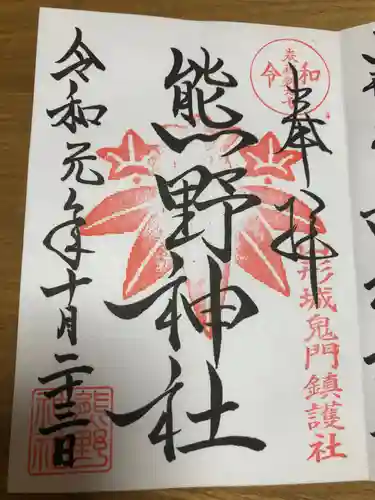 奉拝
令和
山形城鬼門鎮護社
熊野神社
令和元年十月二十三日
熊野
神社